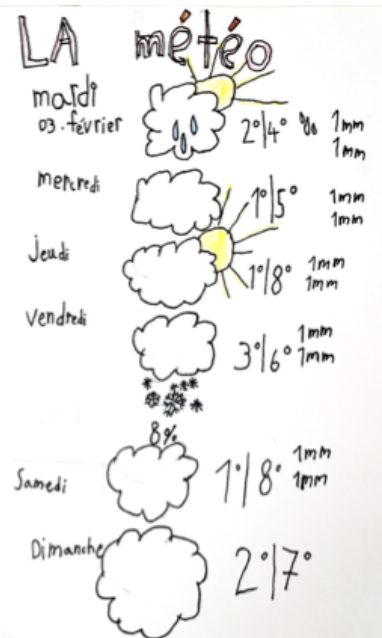 LA météo
mardi
03. février
2°|4° % 1mm
1mm
mercredi
1°|5° 1mm
1mm
Jeudi
1°|8° 1mm
1mm
Vendredi
3°|6° 1mm
1mm
8%
Samedi
1°|8° 1mm
1mm
Dimanche
2°|7°